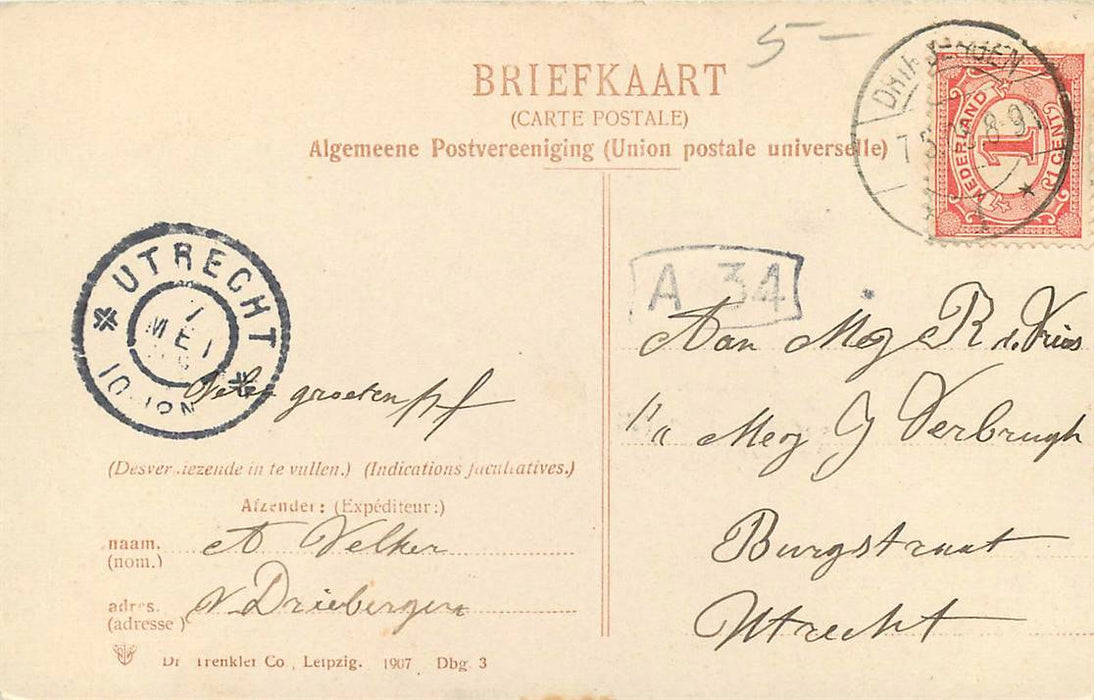 5 –
BRIEFKAART
(CARTE POSTALE)
Algemeene Postvereeniging (Union postale universelle)
7.5. 8-9
NEDERLAND
1
1 CENT
UTRECHT
7
MEI
10-12N
A 34
Aan Mej R d. Vries
" Mej J Verbrugh
Burgstraat
Utrecht
Vele groeten
(Desverkiezende in te vullen.) (Indications facultatives.)
Afzender: (Expéditeur:)
naam. A Velker
(nom.)
adres. v Driebergen
(adresse)
Dr Trenkler Co., Leipzig. 1907 Dbg. 3